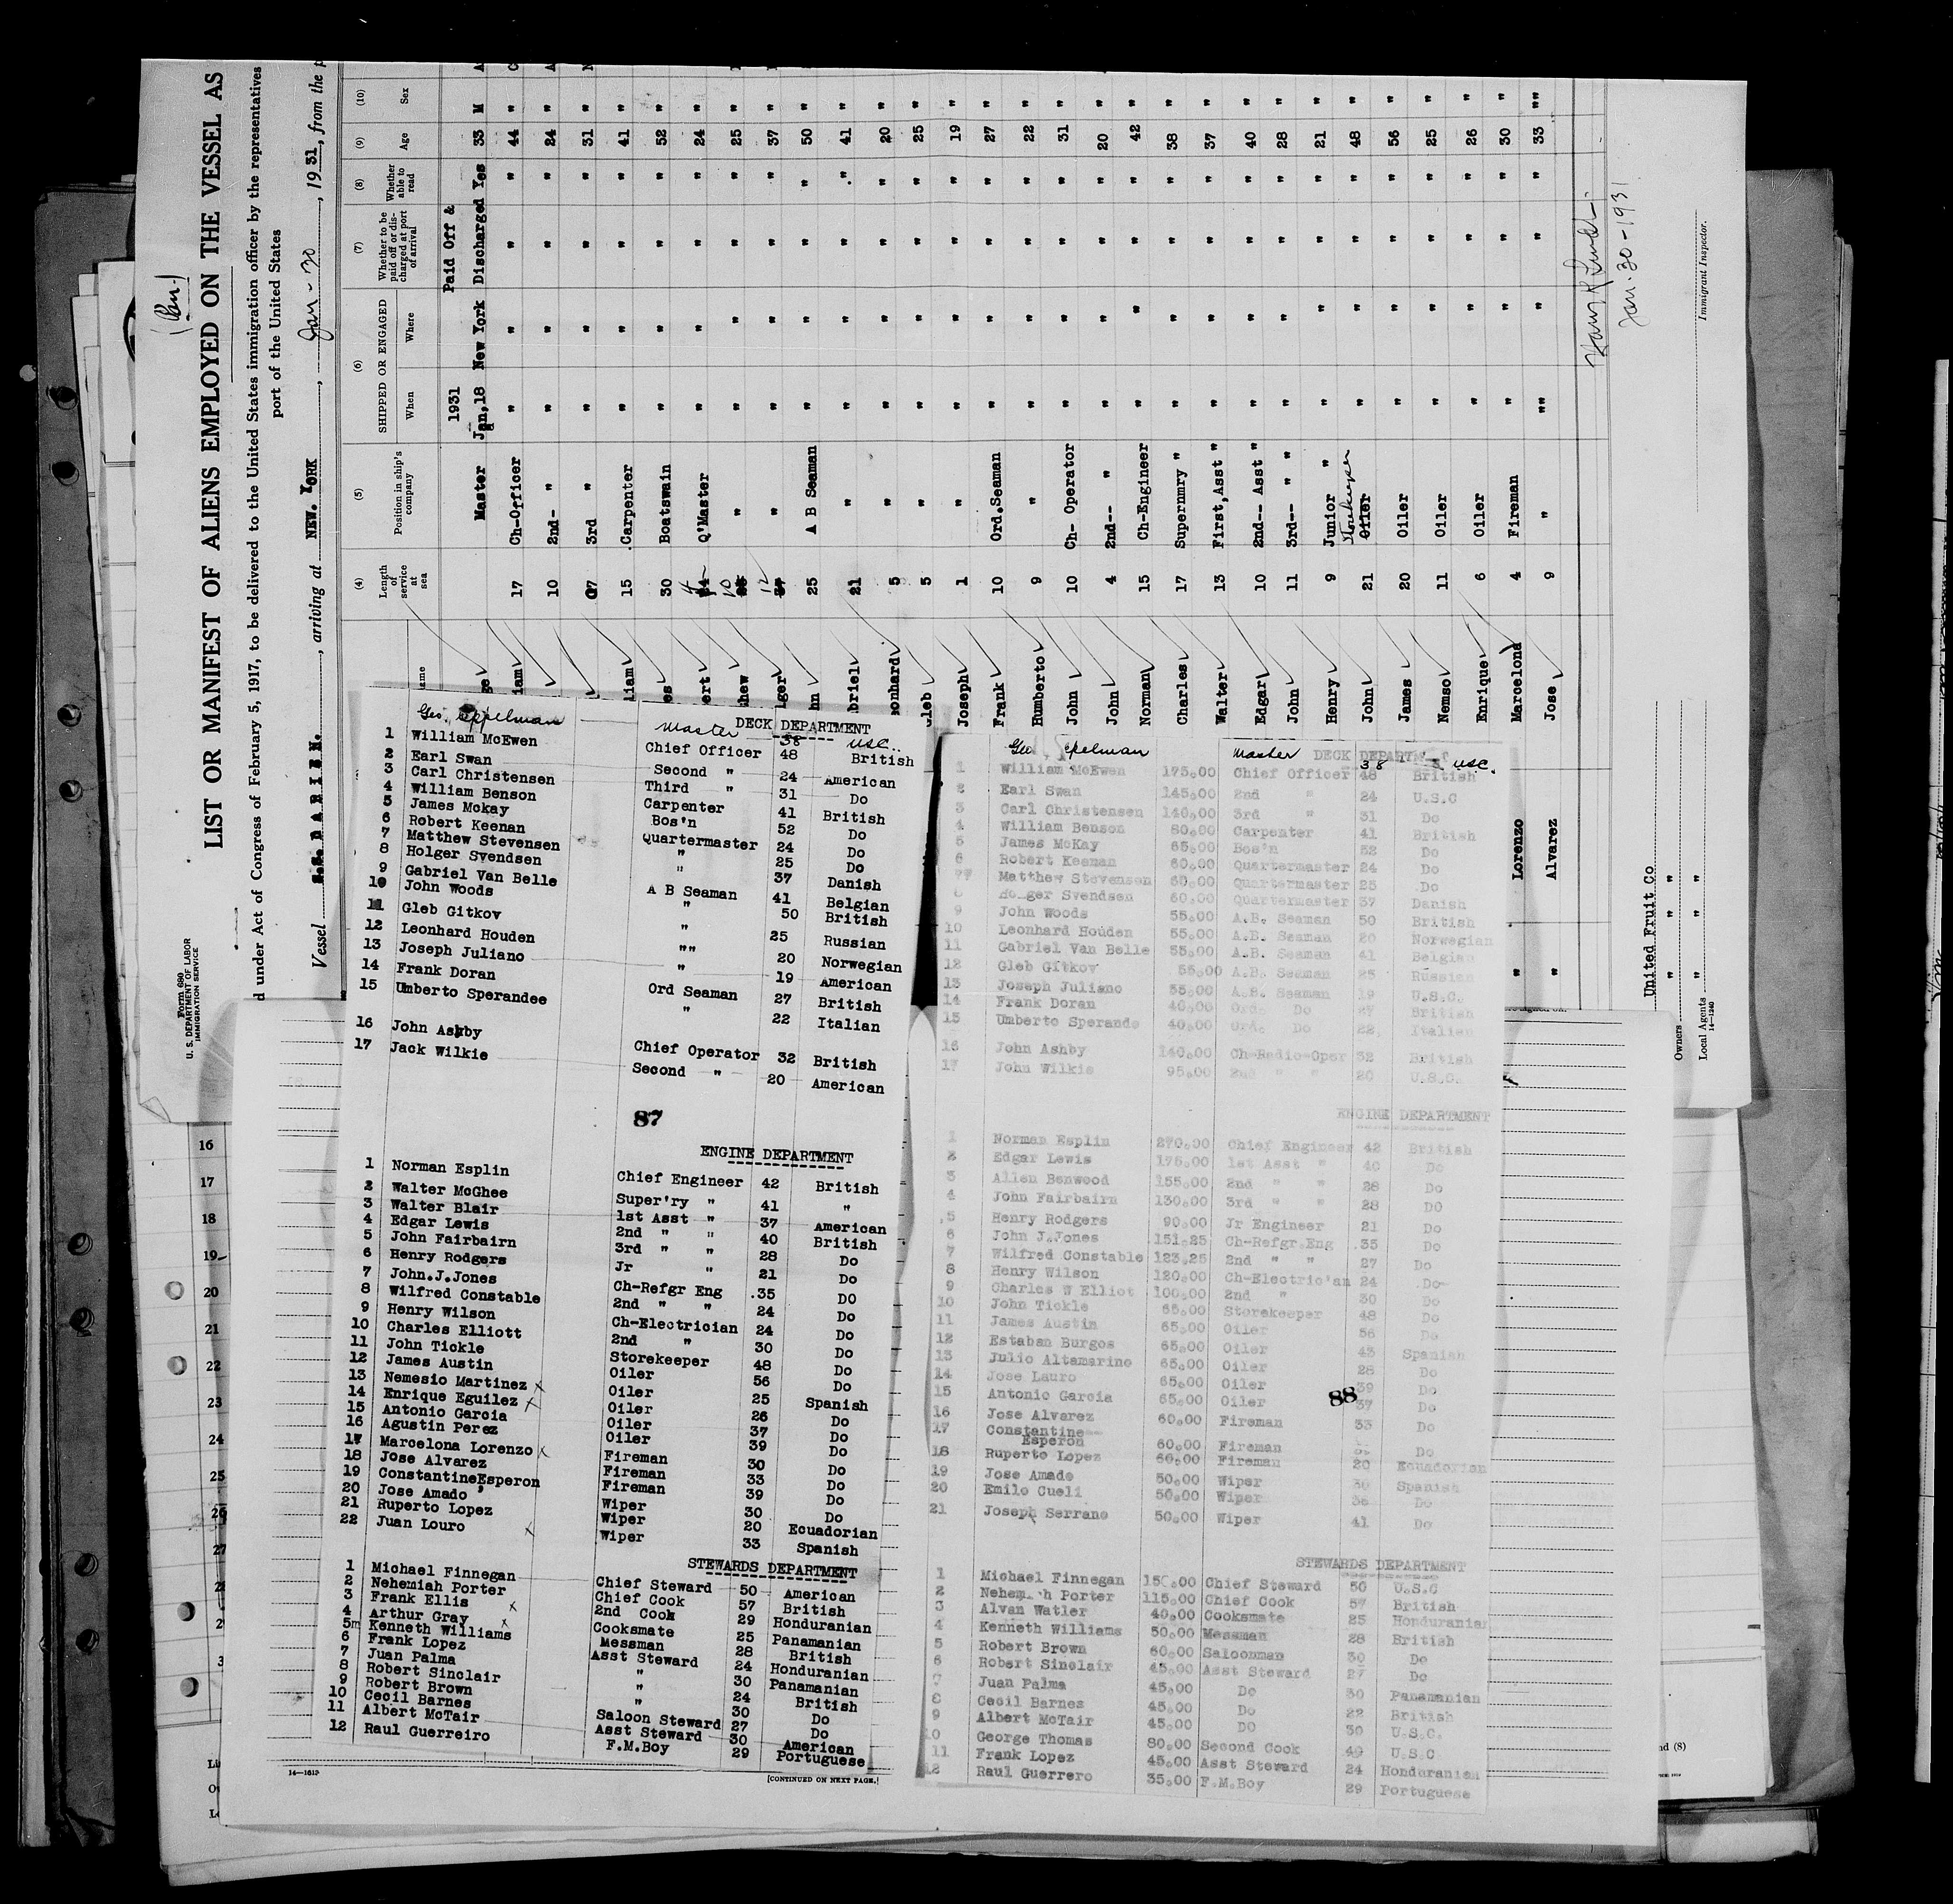 (Pan.)
LIST OR MANIFEST OF ALIENS EMPLOYED ON THE VESSEL AS
d under Act of Congress of February 5, 1917, to be delivered to the United States immigration officer by the representatives
port of the United States
Vessel S.S. DARIEN. , arriving at NEW. YORK , Jan - 30 , 1931, from the p
Form 680
U. S. DEPARTMENT OF LABOR
IMMIGRATION SERVICE
(4) (5) (6) (7) (8) (9) (10)
Length of service at sea
Position in ship's company
SHIPPED OR ENGAGED
When Where
Whether to be paid off or discharged at port of arrival
Whether able to read
Age
Sex
1931 Paid Off &
Master Jan,18 New York Discharged Yes 33 M
17 Ch-Officer " " " " 44 "
10 2nd- " " " " " 24 "
07 3rd " " " " " 31 "
liam 15 Carpenter " " " " 41 "
es 30 Boatswain " " " " 52 "
ert Q'Master " " " " 24 "
hew 10 " " " " " 25 "
lger 12 " " " " " 37 "
hn 25 A B Seaman " " " " 50 "
briel 21 " " " " " 41 "
eonhard 5 " " " " " 20 "
leb 5 " " " " " 25 "
Joseph 1 " " " " " 19 "
Frank 10 Ord.Seaman " " " " 27 "
Humberto 9 " " " " " 22 "
John 10 Ch- Operator " " " " 31 "
John 4 2nd-- " " " " " 20 "
Norman 15 Ch-Engineer " " " " 42 "
Charles 17 Supernmry " " " " " 38 "
Walter 13 First,Asst " " " " " 37 "
Edgar 10 2nd-- Asst " " " " " 40 "
John 11 3rd-- " " " " " " 28 "
Henry 9 Junior " " " " " 21 "
John 21 Oiler Storekeeper " " " " 48 "
James 20 Oiler " " " " 56 "
Nemso 11 Oiler " " " " 25 "
Enrique 6 Oiler " " " " 26 "
Lorenzo Marcelona 4 Fireman " " " " 30 "
Alvarez Jose 9 " "" " " " 33 ""
Jan. 30-1931
Immigrant Inspector.
United Fruit Co
Owners " " "
Local Agents " " "
14—1240
Geo. Eppelman Master 38 USC..
DECK DEPARTMENT
1 William McEwen Chief Officer 48 British
2 Earl Swan Second " 24 American
3 Carl Christensen Third " 31 Do
4 William Benson Carpenter 41 British
5 James Mckay Bos'n 52 Do
6 Robert Keenan Quartermaster 24 Do
7 Matthew Stevensen " 25 Do
8 Holger Svendsen " 37 Danish
9 Gabriel Van Belle A B Seaman 41 Belgian
10 John Woods " 50 British
11 Gleb Gitkov " 25 Russian
12 Leonhard Houden "" 20 Norwegian
13 Joseph Juliano " 19 American
14 Frank Doran Ord Seaman 27 British
15 Umberto Sperandee " 22 Italian
16 John Ashby Chief Operator 32 British
17 Jack Wilkie Second " 20 American
87
ENGINE DEPARTMENT
1 Norman Esplin Chief Engineer 42 British
2 Walter McGhee Super'ry " 41 "
3 Walter Blair 1st Asst " 37 American
4 Edgar Lewis 2nd " " 40 British
5 John Fairbairn 3rd " " 28 Do
6 Henry Rodgers Jr " 21 Do
7 John.J.Jones Ch-Refgr Eng .35 DO
8 Wilfred Constable 2nd " " 24 Do
9 Henry Wilson Ch-Electrician 24 Do
10 Charles Elliott 2nd " 30 Do
11 John Tickle Storekeeper 48 Do
12 James Austin Oiler 56 Do
13 Nemesio Martinez x Oiler 25 Spanish
14 Enrique Eguilez x Oiler 26 Do
15 Antonio Garcia Oiler 37 Do
16 Agustin Perez Oiler 39 Do
17 Marcelona Lorenzo x Fireman 30 Do
18 Jose Alvarez Fireman 33 Do
19 ConstantineEsperon Fireman 39 Do
20 Jose Amado Wiper 30 Do
21 Ruperto Lopez Wiper 20 Ecuadorian
22 Juan Louro x Wiper 33 Spanish
STEWARDS DEPARTMENT
1 Michael Finnegan Chief Steward 50 American
2 Nehemiah Porter Chief Cook 57 British
3 Frank Ellis x 2nd Cook 29 Honduranian
4 Arthur Gray x Cooksmate 25 Panamanian
5m Kenneth Williams Messman 28 British
6 Frank Lopez Asst Steward 24 Honduranian
7 Juan Palma " 30 Panamanian
8 Robert Sinclair " 24 British
9 Robert Brown " 30 Do
10 Cecil Barnes Saloon Steward 27 Do
11 Albert McTair Asst Steward 30 American
12 Raul Guerreiro F.M.Boy 29 Portuguese
14—1612
[CONTINUED ON NEXT PAGE.]
Geo. Epelman Master 38 USC.
DECK DEPARTM
1 William McEwen 175.00 Chief Officer 48 British
2 Earl Swan 145.00 2nd " 24 U.S.C
3 Carl Christensen 140.00 3rd " 31 Do
4 William Benson 80.00 Carpenter 41 British
5 James McKay 65.00 Bos'n 52 Do
6 Robert Keenan 60.00 Quartermaster 24 Do
Matthew Stevensen 60.00 Quartermaster 25 Do
8 Holger Svendsen 60.00 Quartermaster 37 Danish
9 John Woods 55.00 A.B. Seaman 50 British
10 Leonhard Houden 55.00 A.B. Seaman 20 Norwegian
11 Gabriel Van Belle 55.00 A.B. Seaman 41 Belgian
12 Gleb Gitkov 55.00 A.B. Seaman 25 Russian
13 Joseph Juliano 55.00 A.B. Seaman 19 U.S.C.
14 Frank Doran 40.00 Ord. Do 27 British
15 Umberto Sperande 40.00 Ord. Do 22 Italian
16 John Ashby 140.00 Ch-Radio-Oper 32 British
17 John Wilkie 95.00 2nd " " 20 U.S.C.
ENGINE DEPARTMENT
1 Norman Esplin 270.00 Chief Engineer 42 British
2 Edgar Lewis 175.00 1st Asst " 40 Do
3 Allen Benwood 155.00 2nd " " 28 Do
4 John Fairbairn 130.00 3rd " " 28 DO
5 Henry Rodgers 90.00 Jr Engineer 21 Do
6 John J.Jones 151.25 Ch-Refgr.Eng .35 Do
7 Wilfred Constable 123.25 2nd " " 27 Do
8 Henry Wilson 120.00 Ch-Electric'an 24 Do
9 Charles W Elliot 100.00 2nd " 30 Do
10 John Tickle 65.00 Storekeeper 48 Do
11 James Austin 65.00 Oiler 56 Do
12 Estaban Burgos 65.00 Oiler 43 Spanish
13 Julio Altamarino 65.00 Oiler 28 Do
14 Jose Lauro 65.00 Oiler 39 Do
15 Antonio Garcia 65.00 Oiler 37 Do
88
16 Jose Alvarez 60.00 Fireman 33 Do
17 Constantine Esperon 60.00 Fireman Do
18 Ruperto Lopez 60.00 Fireman 20 Ecuadorian
19 Jose Amado 50.00 Wiper 30 Spanish
20 Emilo Cueli 50.00 Wiper 36 Do
21 Joseph Serrano 50.00 Wiper 41 Do
STEWARDS DEPARTMENT
1 Michael Finnegan 150.00 Chief Steward 50 U.S.C
2 Nehem h Porter 115.00 Chief Cook 57 British
3 Alvan Watler 40.00 Cooksmate 25 Honduranian
4 Kenneth Williams 50.00 Messman 28 British
5 Robert Brown 60.00 Saloonman 30 Do
6 Robert Sinclair 45.00 Asst Steward 27 Do
7 Juan Palma 45.00 Do 30 Panamanian
8 Cecil Barnes 45.00 Do 22 British
9 Albert McTair 45.00 DO 30 U.S.C.
10 George Thomas 80.00 Second Cook 49 U.S.C
11 Frank Lopez 45.00 Asst Steward 24 Honduranian
12 Raul Guerrero 35.00 F.M.Boy 29 Portuguese
16
17
18
19
20
21
22
23
24
25
26
27
nd (8)